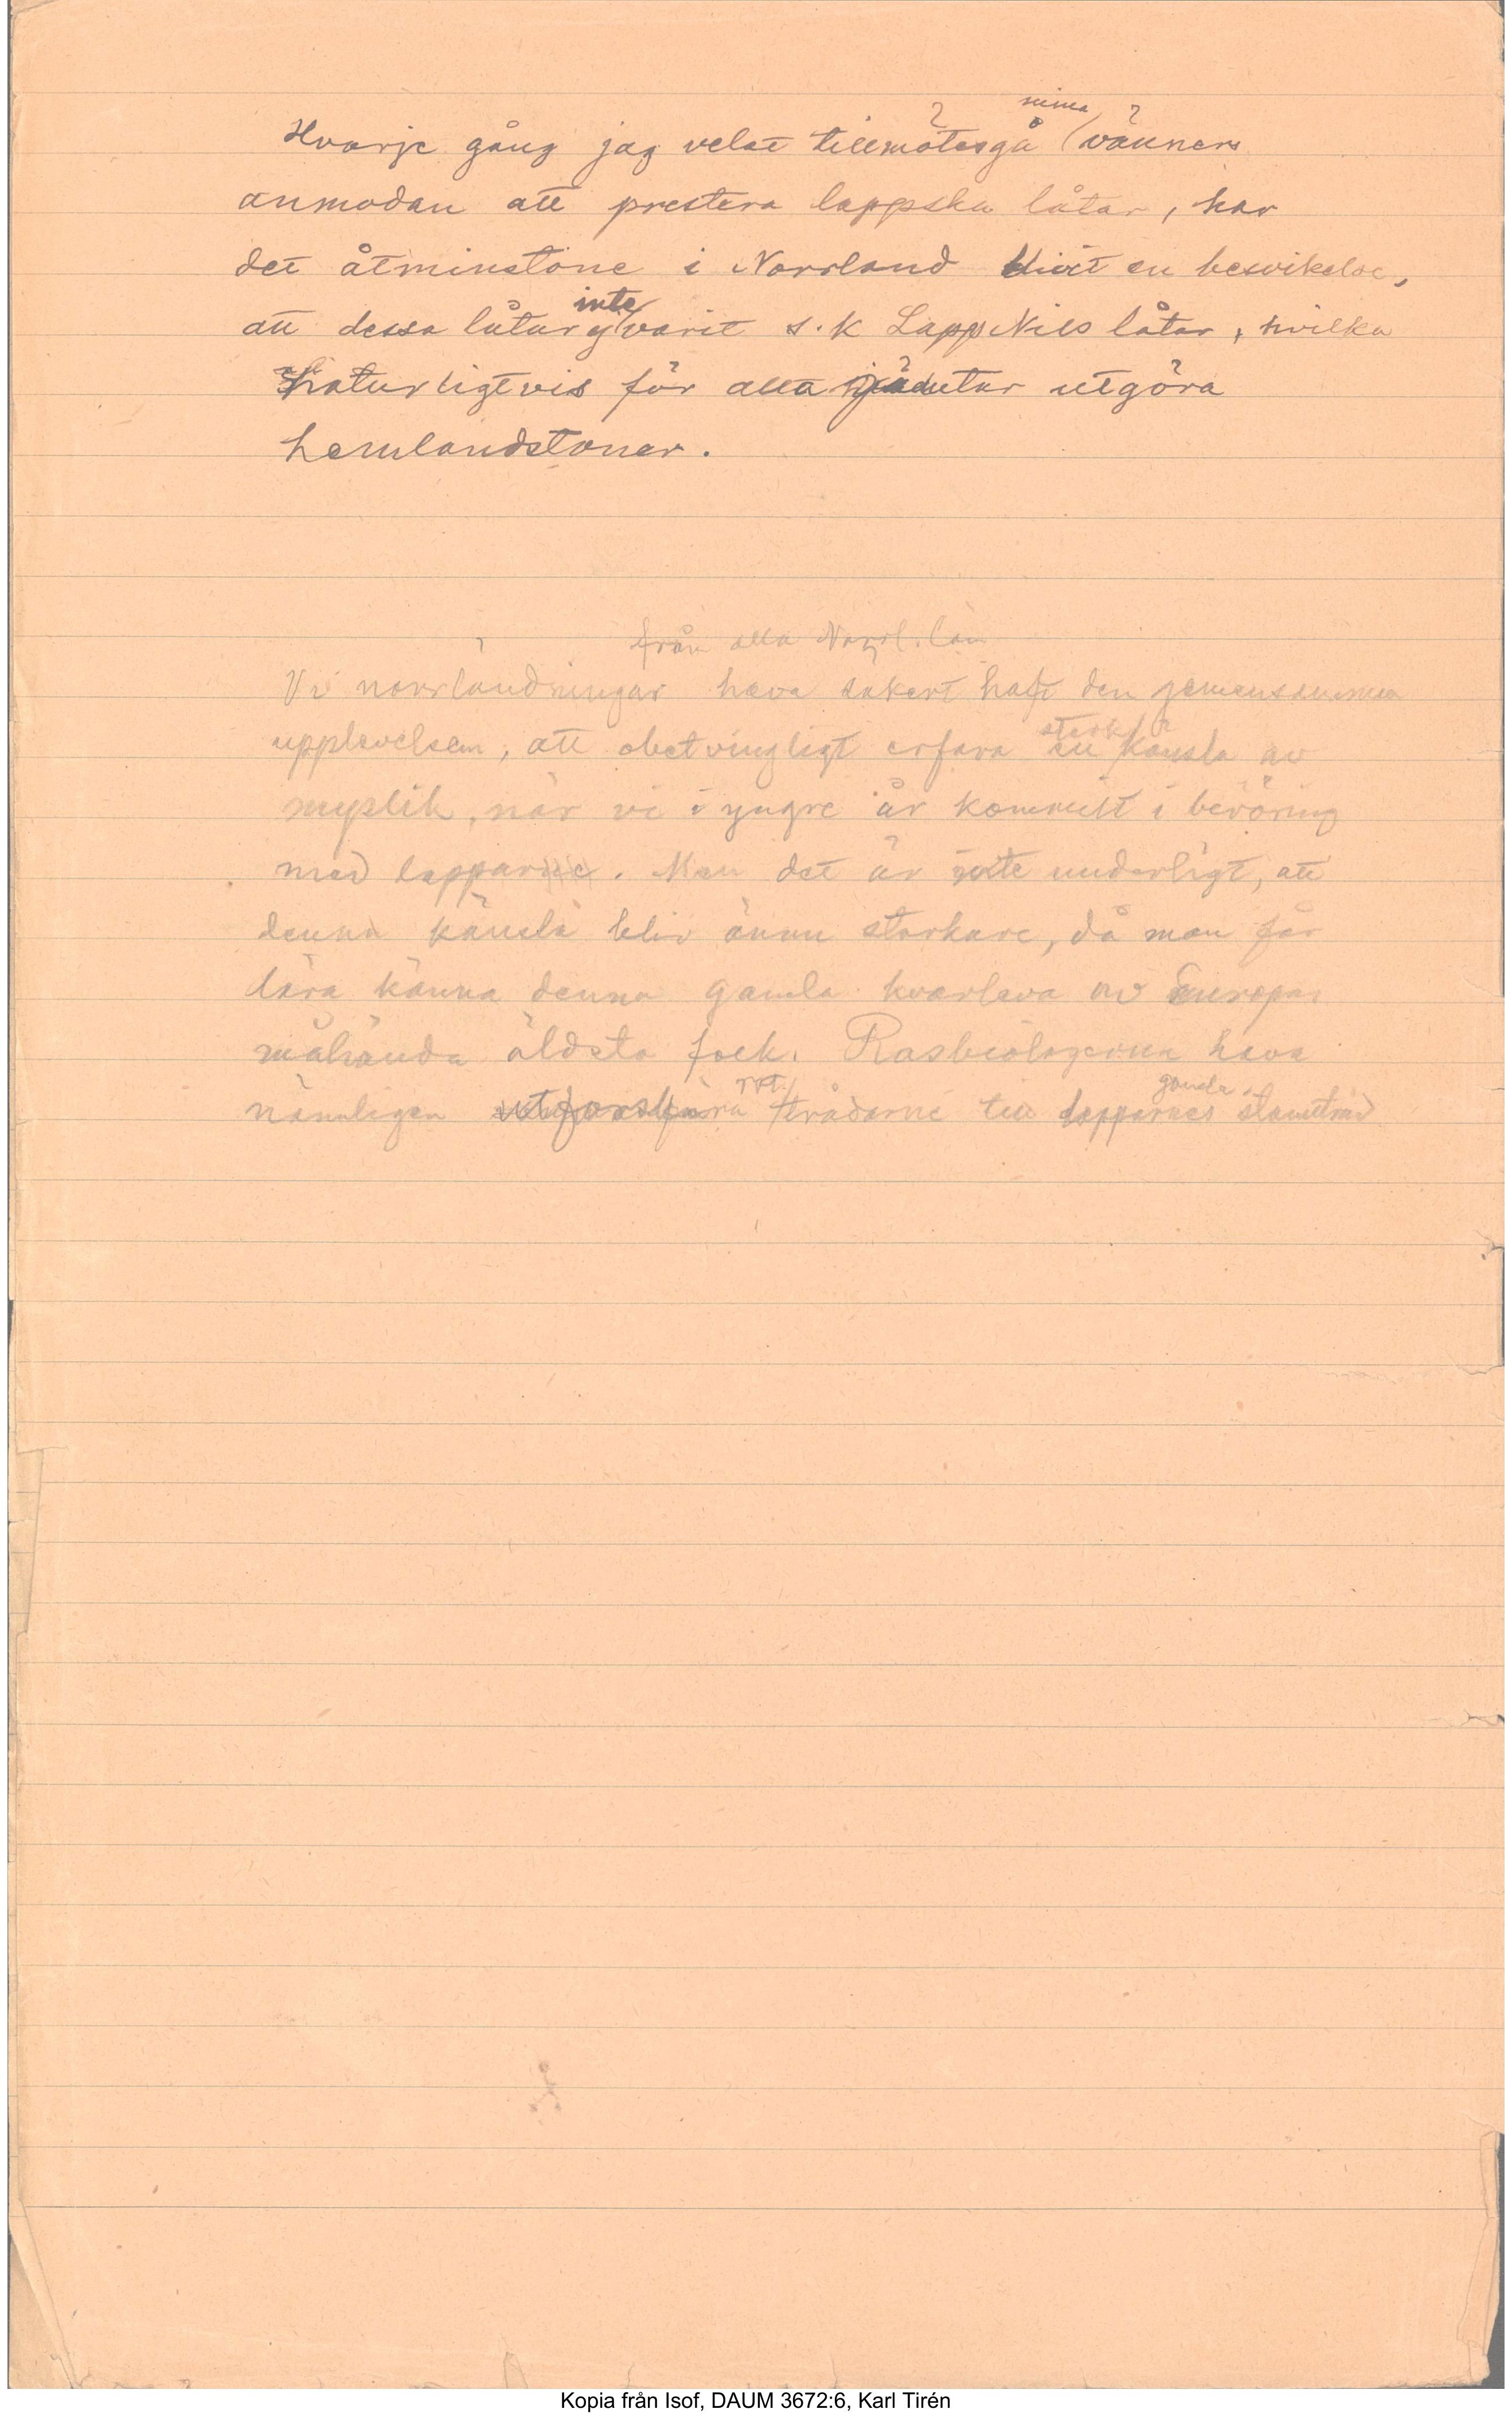 mina
Hvarje gång jag velat tillmötesgå vänners
anmodan att prestera lappska låtar, har
det åtminstone i Norrland blivit en besvikelse,
inte
att dessa låtar ej varit s.k Lapp Nils låtar, hvilka
naturligtvis för alla jämtar utgöra
hemlandstoner.
från alla Norrl. län
Vi norrländningar hava säkert haft den gemensamma
stark
upplevelsen, att obetvingligt erfara en känsla av
mystik, när vi i yngre år kommit i beröring
med lapparne. Men det är inte underligt, att
denna känsla bliv ännu starkare, då man får
lära känna denna gamla kvarleva av Europas
måhända äldsta folk. Rasbiologerna hava
gamla
nämligen trådarne till lapparnes stamträd
Kopia från Isof, DAUM 3672:6, Karl Tirén